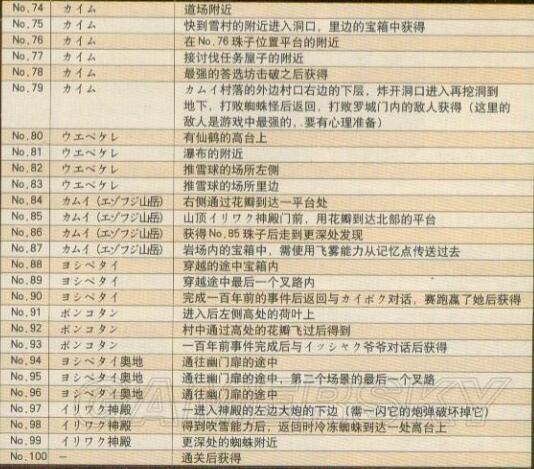 No.74 カイム 道场附近
No.75 カイム 快到雪村的附近进入洞口，里边的宝箱中获得
No.76 カイム 在No.76珠子位置平台的附近
No.77 カイム 接讨伐任务屋子的附近
No.78 カイム 最强的答选坊击破之后获得
No.79 カイム カムイ村落的外边村口右边的下层，炸开洞口进入再挖洞到
地下，打败蜘蛛怪后返回，打败罗城门内的敌人获得（这里的
敌人是游戏中最强的，要有心理准备）
No.80 ウエペケレ 有仙鹤的高台上
No.81 ウエペケレ 瀑布的附近
No.82 ウエペケレ 推雪球的场所左侧
No.83 ウエペケレ 推雪球的场所里边
No.84 カムイ（エゾフジ山岳） 右侧通过花瓣到达一平台处
No.85 カムイ（エゾフジ山岳） 山顶イリワク神殿门前，用花瓣到达北部的平台
No.86 カムイ（エゾフジ山岳） 获得No.85珠子后走到更深处发现
No.87 カムイ（エゾフジ山岳） 岩场内的宝箱中，需使用飞雾能力从记忆点传送过去
No.88 ヨシペタイ 穿越的途中宝箱内
No.89 ヨシペタイ 穿越途中最后一个叉路内
No.90 ヨシペタイ 完成一百年前的事件后返回与カイポク对话，赛跑赢了她后获得
No.91 ポンコタン 进入后左侧高处的荷叶上
No.92 ポンコタン 村中通过高处的花瓣飞过后得到
No.93 ポンコタン 一百年前事件完成后与イッシャク爷爷对话后获得
No.94 ヨシペタイ奥地 通往幽门扉的途中
No.95 ヨシペタイ奥地 通往幽门扉的途中，第二个场景的最后一个叉路
No.96 ヨシペタイ奥地 通往幽门扉的途中
No.97 イリワク神殿 一进入神殿的左边大炮的下边（需一闪它的炮弹破坏掉它）
No.98 イリワク神殿 得到吹雪能力后，返回时冷冻蜘蛛到达一处高台上
No.99 イリワク神殿 更深处的蜘蛛附近
No.100 － 通关后获得